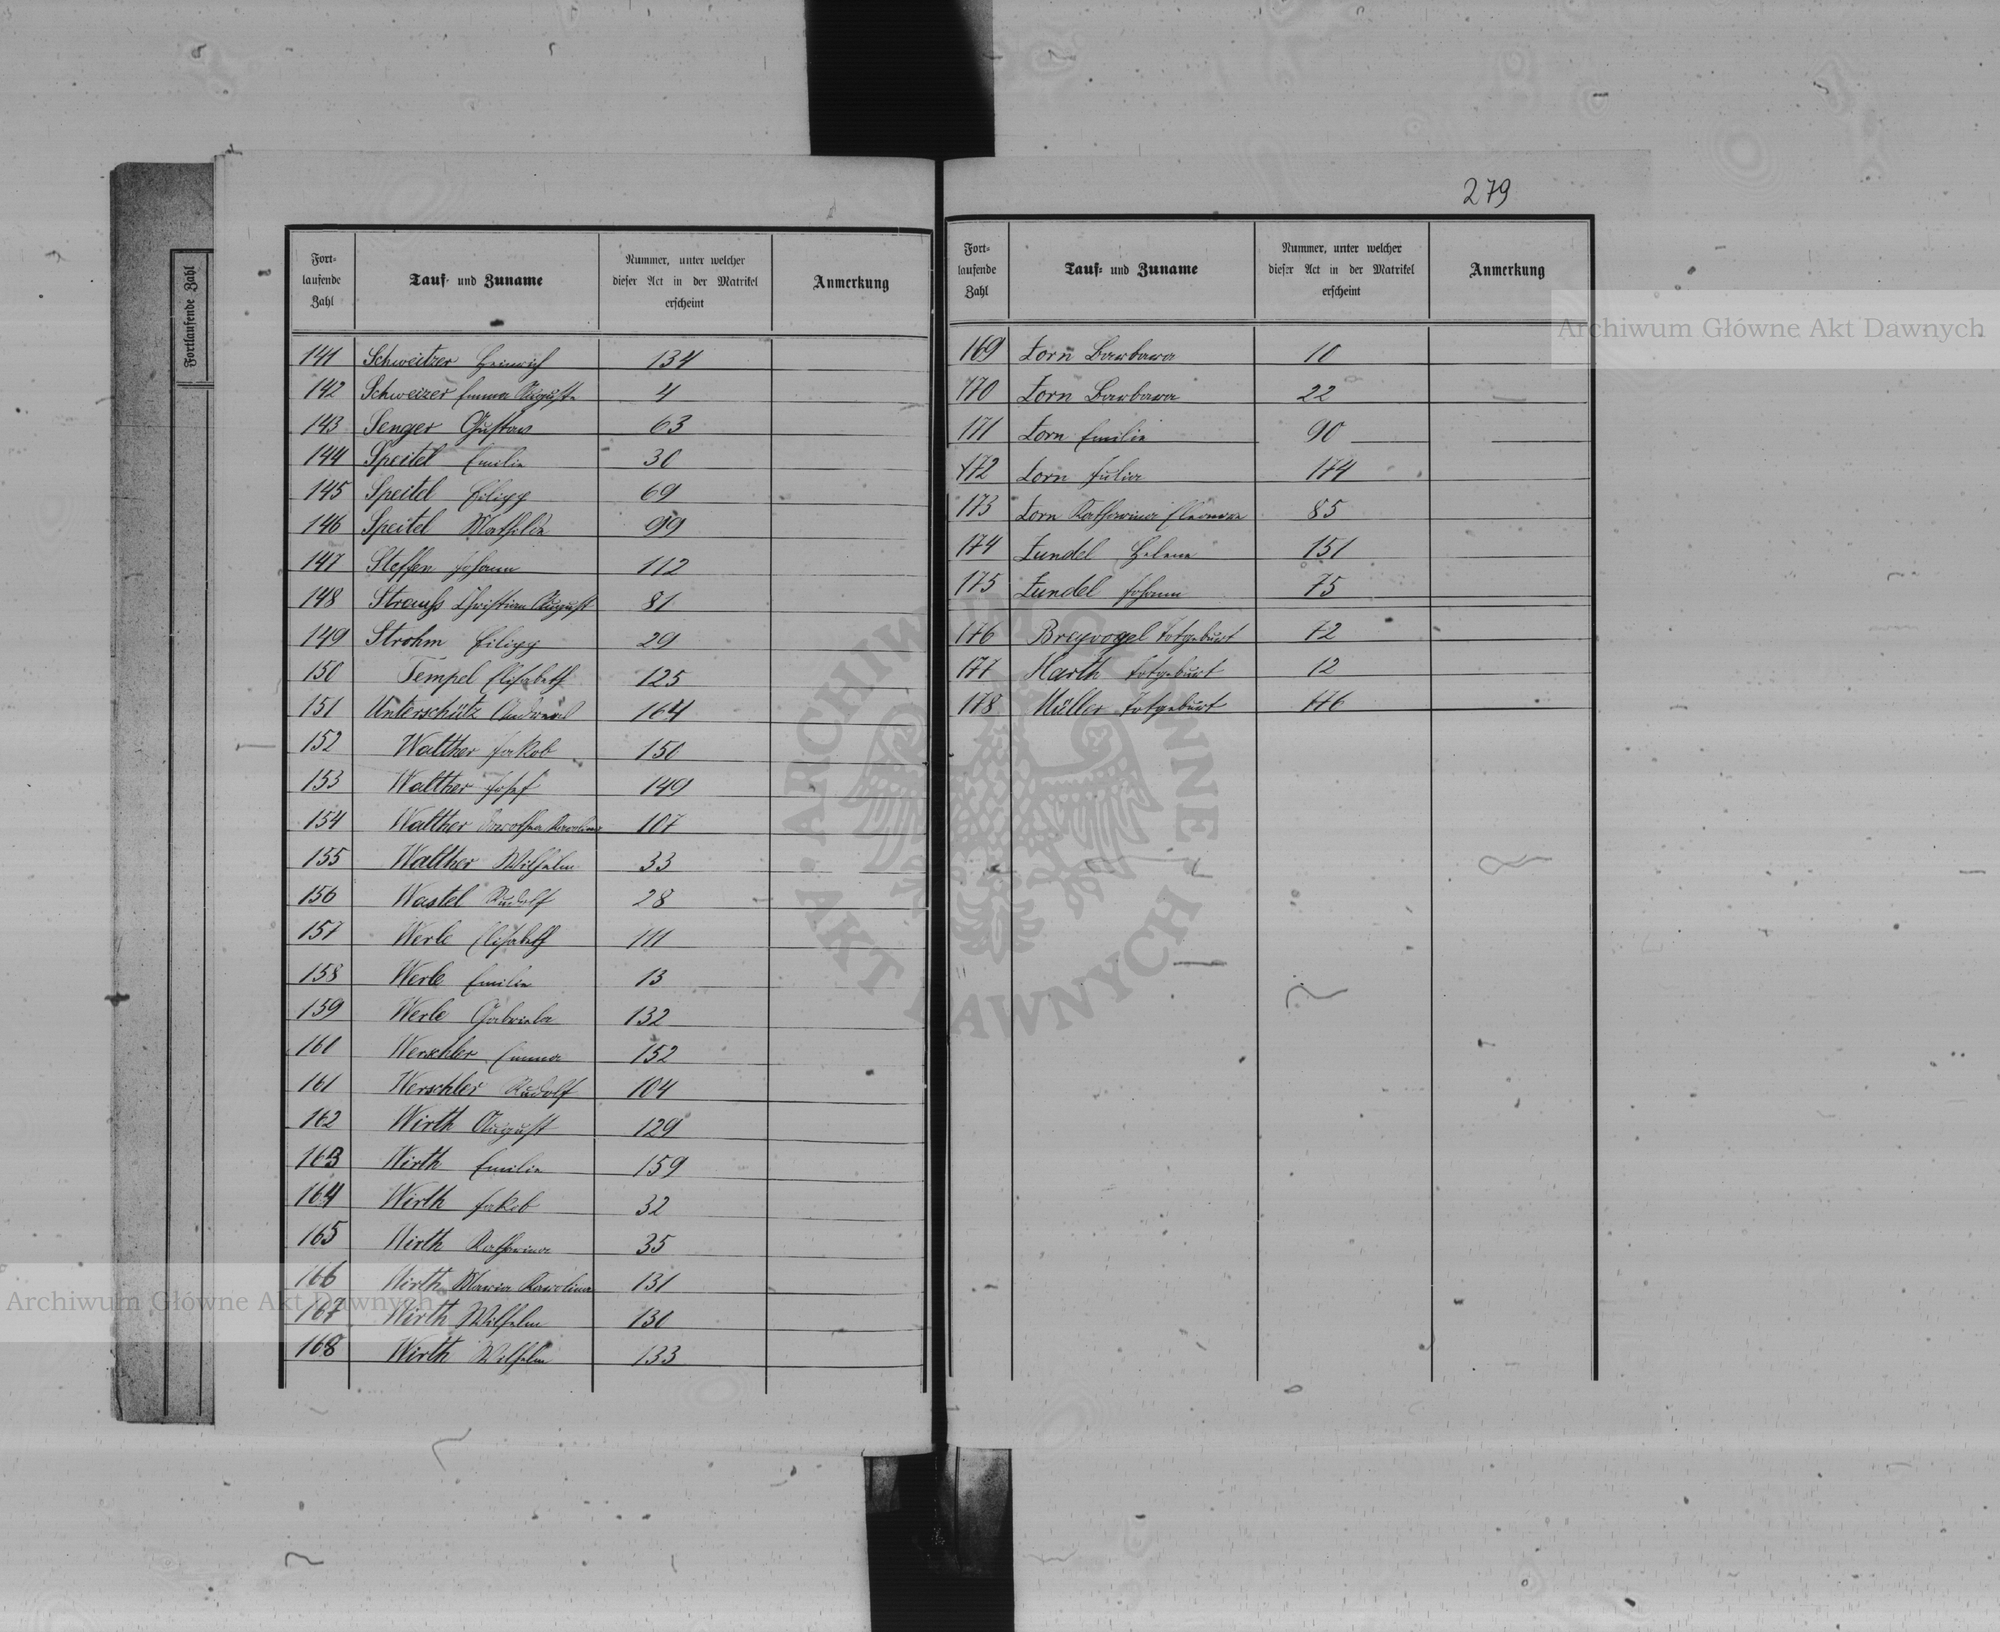 279
Fortlaufende Zahl
Fort-
laufende
Zahl
Tauf- und Zuname
Nummer, unter welcher
dieser Act in der Matrikel
erscheint
Anmerkung
141 Schweitzer Heinrich 134
142 Schweizer Emma Auguste 4
143 Senger Gustav 63
144 Speitel Emilie 30
145 Speitel Filipp 69
146 Speitel Mathilde 99
147 Steffen Johann 112
148 Strauß Christian August 81
149 Strohm Filipp 29
150 Tempel Elisabeth 125
151 Unterschütz 164
152 Walther Jakob 150
153 Walther Josef 149
154 Walther Dorothea Karolina 107
155 Walther Wilhelm 33
156 Wastel Rudolf 28
157 Werle Elisabeth 111
158 Werle Emilie 13
159 Werle Gabriela 132
160 Werschler Emma 152
161 Werschler Rudolf 104
162 Wirth August 129
163 Wirth Emilie 159
164 Wirth Jakob 32
165 Wirth Katharina 35
166 Wirth Maria Karolina 131
167 Wirth Wilhelm 130
168 Wirth Wilhelm 133
Fort-
laufende
Zahl
Tauf- und Zuname
Nummer, unter welcher
dieser Act in der Matrikel
erscheint
Anmerkung
169 Zorn Barbara 10
170 Zorn Barbara 22
171 Zorn Emilie 90
172 Zorn Julia 174
173 Zorn Katharina Eleonore 85
174 Zundel Helene 151
175 Zundel Johann 75
176 Breyvogel Totgeburt 72
177 Harth Totgeburt 12
178 Müller Totgeburt 176
Archiwum Główne Akt Dawnych
Archiwum Główne Akt Dawnych
ARCHIWUM GŁÓWNE AKT DAWNYCH